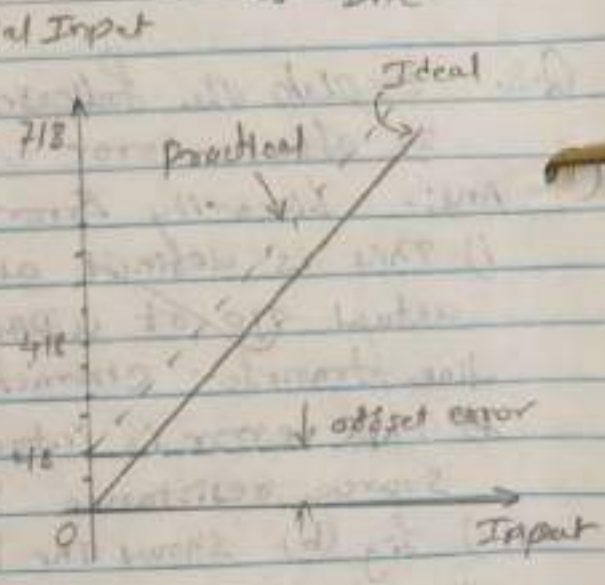 al Input
Ideal
7/8
Practical
4/8
offset error
0
Input